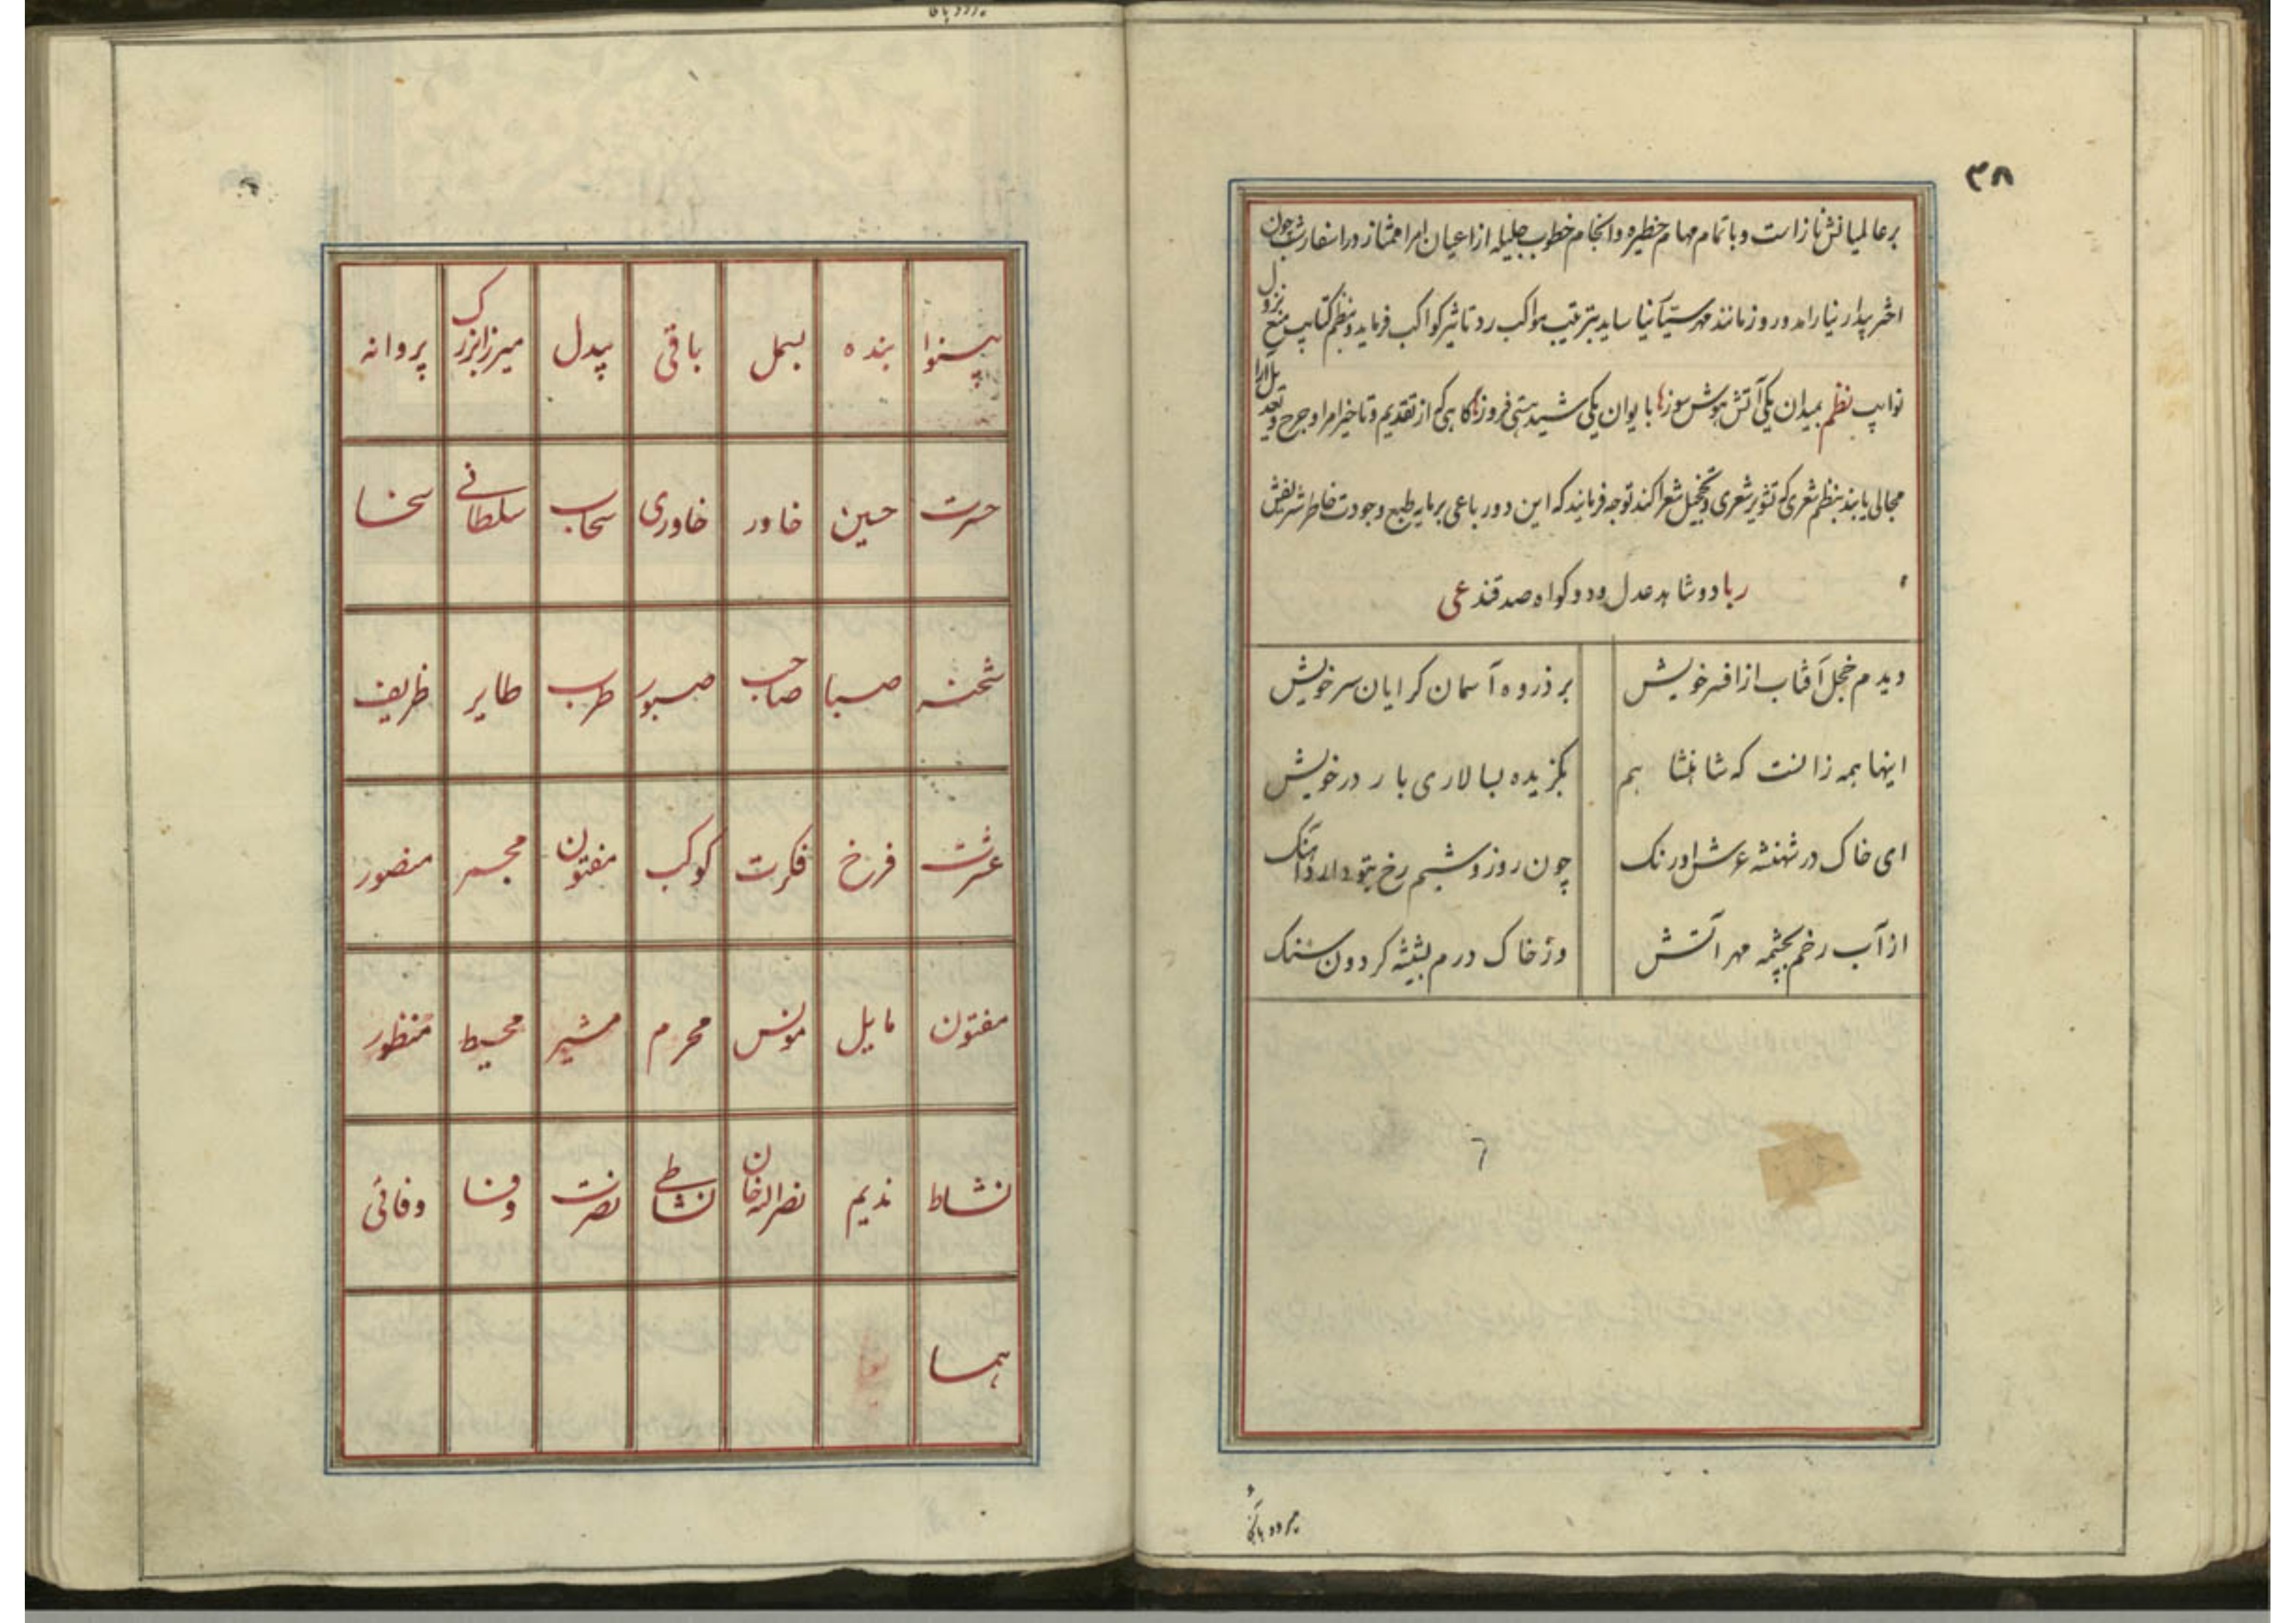 ۳۸
بر عالمیانش نازاست و با تمام مهام خطیره و انجام خطوب جلیله از اعیان امرا ممتاز در اسفار شب چون
اختر بیدار نیاراید و روز مانند مهر نیاساید بترتیب مواکب رد تاثیر کواکب فرماید و بنظم کتایب منع نزول
نوایب نظم بمیدان یکی آتش هوش سوز با یوان یکی شید هستی فروز کاهی که از تقدیم و تاخیر امرا و جرح و تعدیل ارا
مجالی یابند بنظم شعری که تثویر شعری و تخجیل شعرا کند توجه فرمایند که این دو رباعی بر مایه طبع و جودت خاطر شریفش
ربا دو شاهد عدل و دو کواه صدقند عی
دیدم خجل آفتاب از افسر خویش
بر ذروه آسمان کرایان سر خویش
اینها همه زانست که شاهنشا هم
بکزیده بسالاری بار در خویش
ای خاک در شهنشه عرش اورنک
چون روز و شبم رخ بتو دارد آهنک
از آب رخم بچشمه مهر آتش
وز خاک درم بشیشه کردون سنک
بینوا بنده بسمل باقی بیدل میرزابزرک پروانه
حسرت حسین خاور خاوری سحاب سلطانی سخا
شحنه صبا صاحب صبور طرب طایر ظریف
عشرت فرخ فکرت کوکب مفتون مجمر منصور
مفتون مایل مونس محرم مشیر محیط منظور
نشاط ندیم نصراله‌خان نشاطی نصرت وفا وفائی
هما